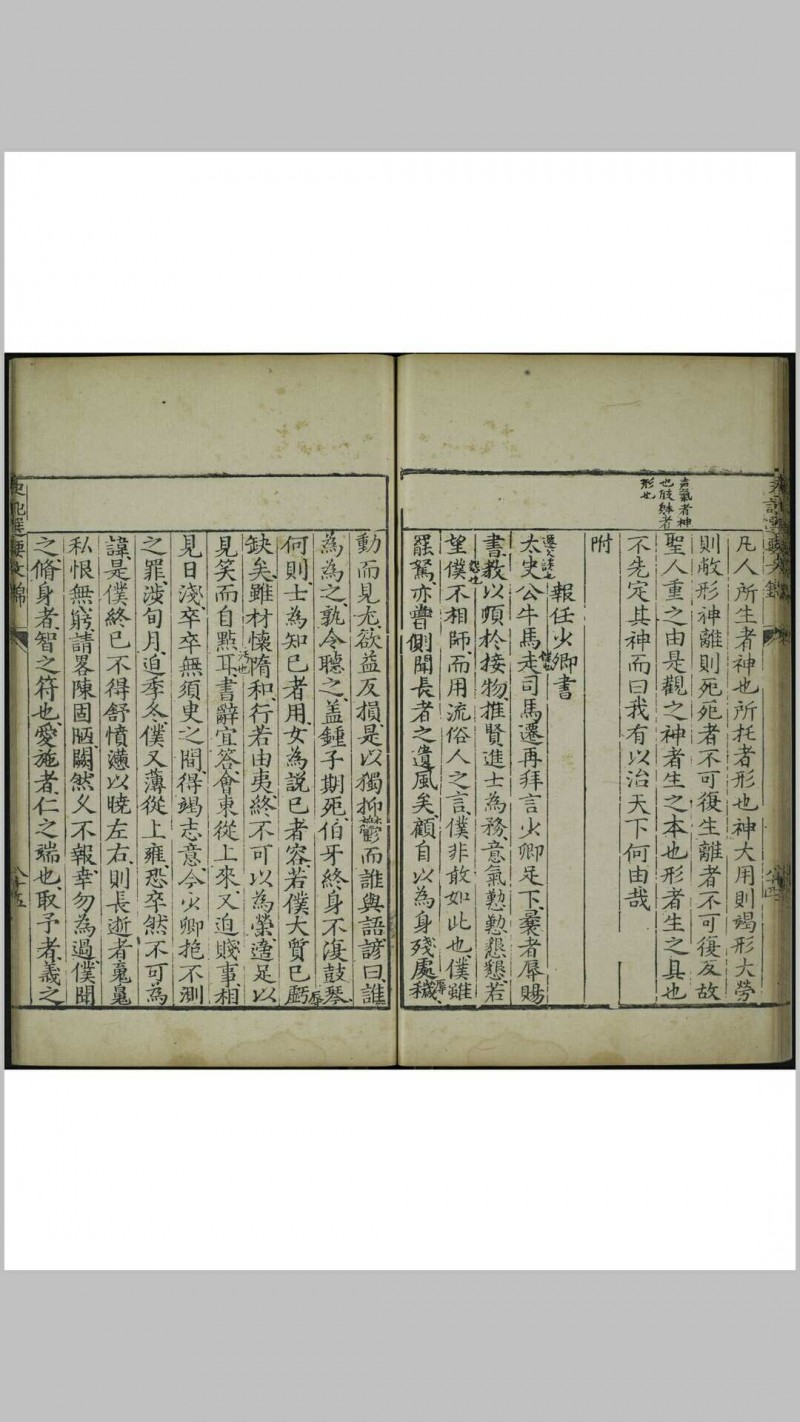 言氣者神
也肢體者
形也
凡人所生者神也所托者形也神大用則竭形大勞
則敝形神離則死死者不可復生離者不可復反故
聖人重之由是觀之神者生之本也形者生之具也
不先定其神而曰我有以治天下何由哉
附
報任少卿書
太史公牛馬走司馬遷再拜言少卿足下曩者辱賜
書教以順於接物推賢進士為務意氣懃懃懇懇若
望僕不相師而用流俗人之言僕非敢如此也僕雖
罷駑亦嘗側聞長者之遺風矣顧自以為身殘處穢
動而見尤欲益反損是以獨抑鬱而誰與語諺曰誰
為為之孰令聽之蓋鍾子期死伯牙終身不復鼓琴
何則士為知已者用女為説已者容若僕大質已虧
缺矣雖材懷隋和行若由夷終不可以為榮適足以
見笑而自點耳書辭宜答會東從上來又迫賤事相
見日淺卒卒無須史之間得竭志意今少卿抱不測
之罪涉旬月迫季冬僕又薄從上雍恐卒然不可為
諱是僕終已不得舒憤懣以曉左右則長逝者䰟䰟
私恨無窮請畧陳固陋闕然乆不報幸勿為過僕聞
之脩身者智之符也愛施者仁之端也取予者義之
八十五